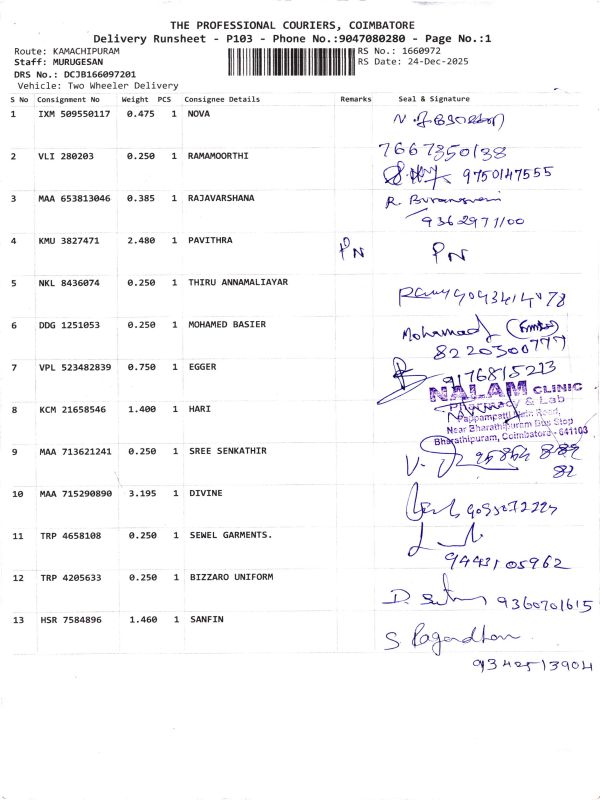 THE PROFESSIONAL COURIERS, COIMBATORE
Delivery Runsheet - P103 - Phone No.:9047080280 - Page No.:1
Route: KAMACHIPURAM RS No.: 1660972
Staff: MURUGESAN RS Date: 24-Dec-2025
DRS No.: DCJB166097201
Vehicle: Two Wheeler Delivery
S No Consignment No Weight PCS Consignee Details Remarks Seal & Signature
1 IXM 509550117 0.475 1 NOVA
7667350138
2 VLI 280203 0.250 1 RAMAMOORTHI
9750147555
3 MAA 653813046 0.385 1 RAJAVARSHANA R.
9362971100
4 KMU 3827471 2.480 1 PAVITHRA PN PN
5 NKL 8436074 0.250 1 THIRU ANNAMALIAYAR
6 DDG 1251053 0.250 1 MOHAMED BASIER Mohamad
8220300777
7 VPL 523482839 0.750 1 EGGER 9176815213
NALAM CLINIC
Pharmacy & Lab
8 KCM 21658546 1.400 1 HARI Pappampatti Main Road,
Near Bharathipuram Bus Stop
Bharathipuram, Coimbatore - 641103
9 MAA 713621241 0.250 1 SREE SENKATHIR V.
82
10 MAA 715290890 3.195 1 DIVINE
11 TRP 4658108 0.250 1 SEWEL GARMENTS.
9443105962
12 TRP 4205633 0.250 1 BIZZARO UNIFORM D. 9360701615
13 HSR 7584896 1.460 1 SANFIN S
9342513904